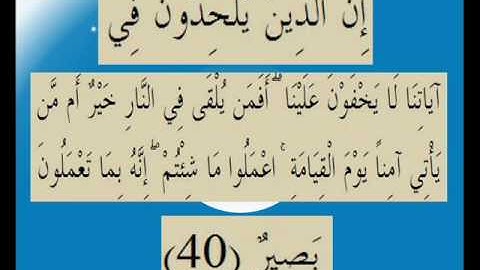 إِنَّ الَّذِينَ يُلْحِدُونَ فِي
آيَاتِنَا لَا يَخْفَوْنَ عَلَيْنَا ۗ أَفَمَن يُلْقَى فِي النَّارِ خَيْرٌ أَم مَّن
يَأْتِي آمِناً يَوْمَ الْقِيَامَةِ ۚ اعْمَلُوا مَا شِئْتُمْ ۖ إِنَّهُ بِمَا تَعْمَلُونَ
بَصِيرٌ (40)